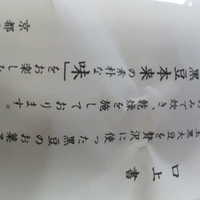 口上書
上黒大豆を贅沢に使った黒豆のお菓
みで炊き、乾燥を施しております。
黒豆本来の素朴な「味」をお楽し
京都